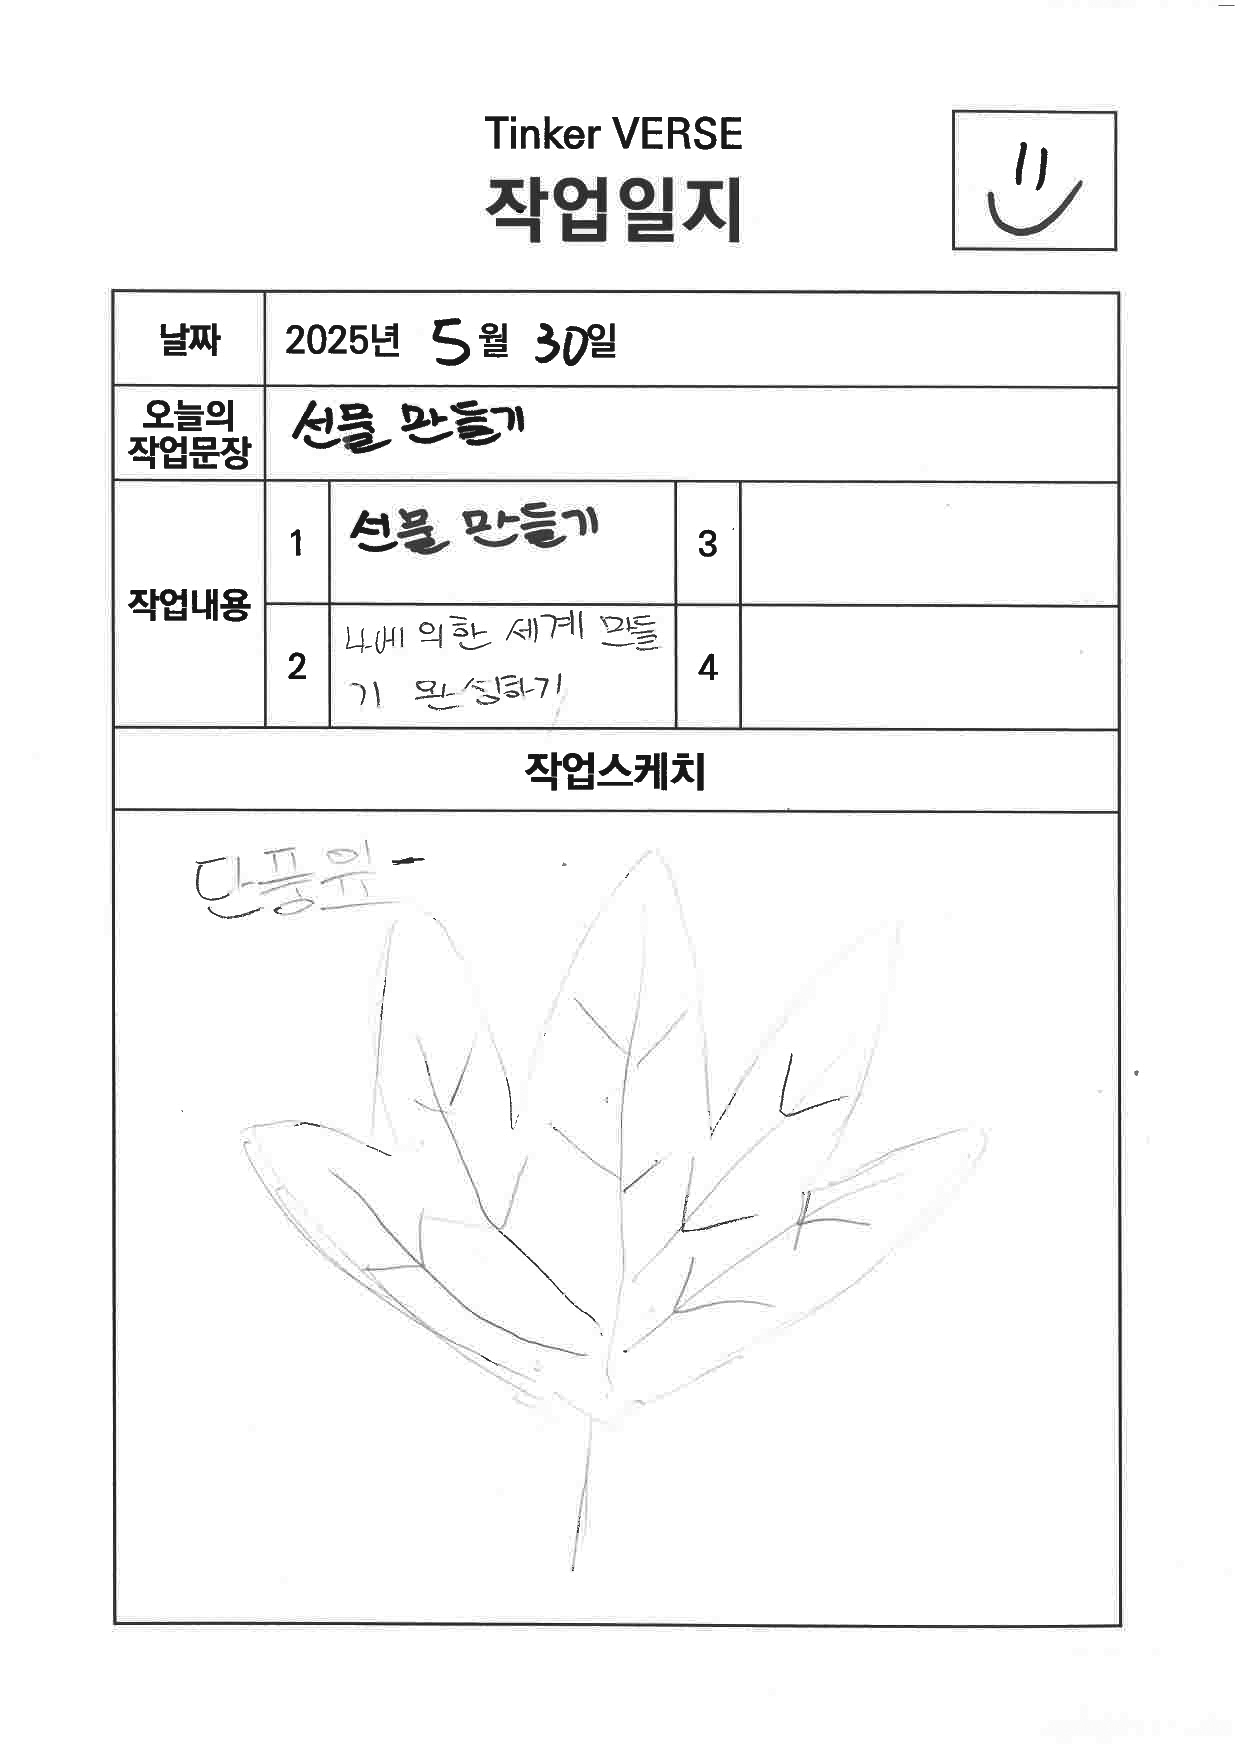 Tinker VERSE
작업일지
날짜
2025년 5월 30일
오늘의
작업문장
선물 만들기
작업내용
1
선물 만들기
3
2
나에 의한 세계 만들
기 완성하기
4
작업스케치
단풍잎